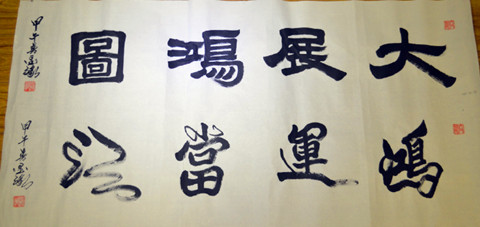 大展鴻圖
甲午春
鴻運當頭
甲午春